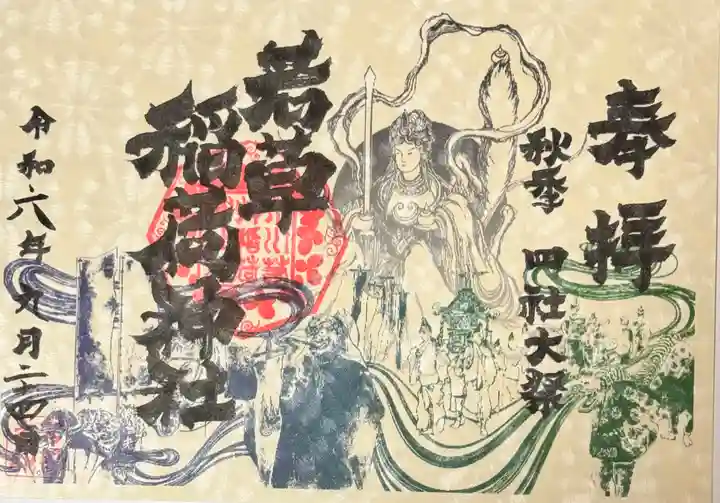 奉拝
秋季 四社大祭
若草
稲荷神社
令和六年九月二十四日